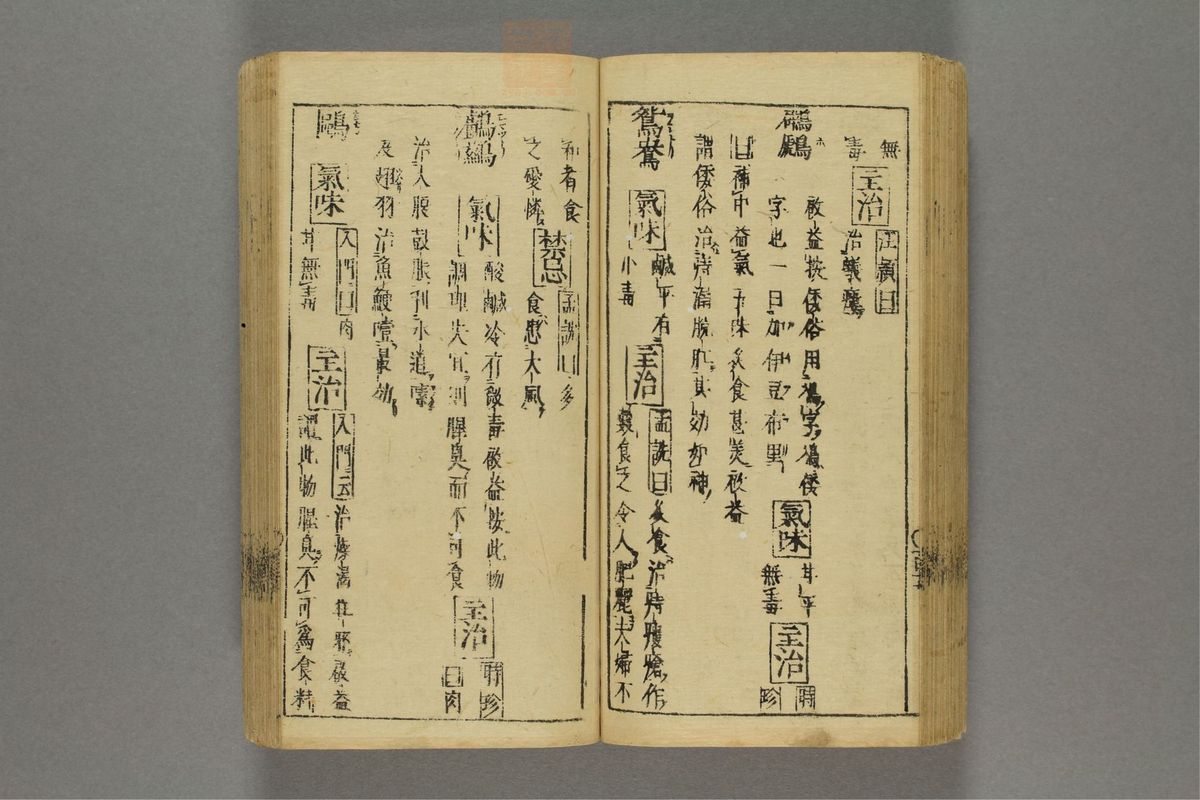 無
毒
主治
江穎曰
治蟻瘻
鸊鷉
敝益按倭俗用鳰字鳰倭
字也一曰加伊豆布里
氣味
甘平
無毒
主治
時珍
曰補中益氣五味炙食甚美敝益
謂倭俗治痔漏脫肛其効如神
鴛鴦
氣味
鹹平有
小毒
主治
孟詵曰炙食治痔瘻瘡作
羹食之令人肥麗夫婦不
和者食
之愛憐
禁忌
孟詵曰多
食患大風
鸕鷀
氣味
酸鹹冷有微毒敝益按此物
調理失宜則腥臭而不可食
主治
時珍
曰肉
治大腹鼓脹利水道
及翅羽治魚鯁噎最効
鷗
氣味
入門曰肉
甘無毒
主治
入門云治燥渴狂邪敝益
謂此物腥臭不可為食料